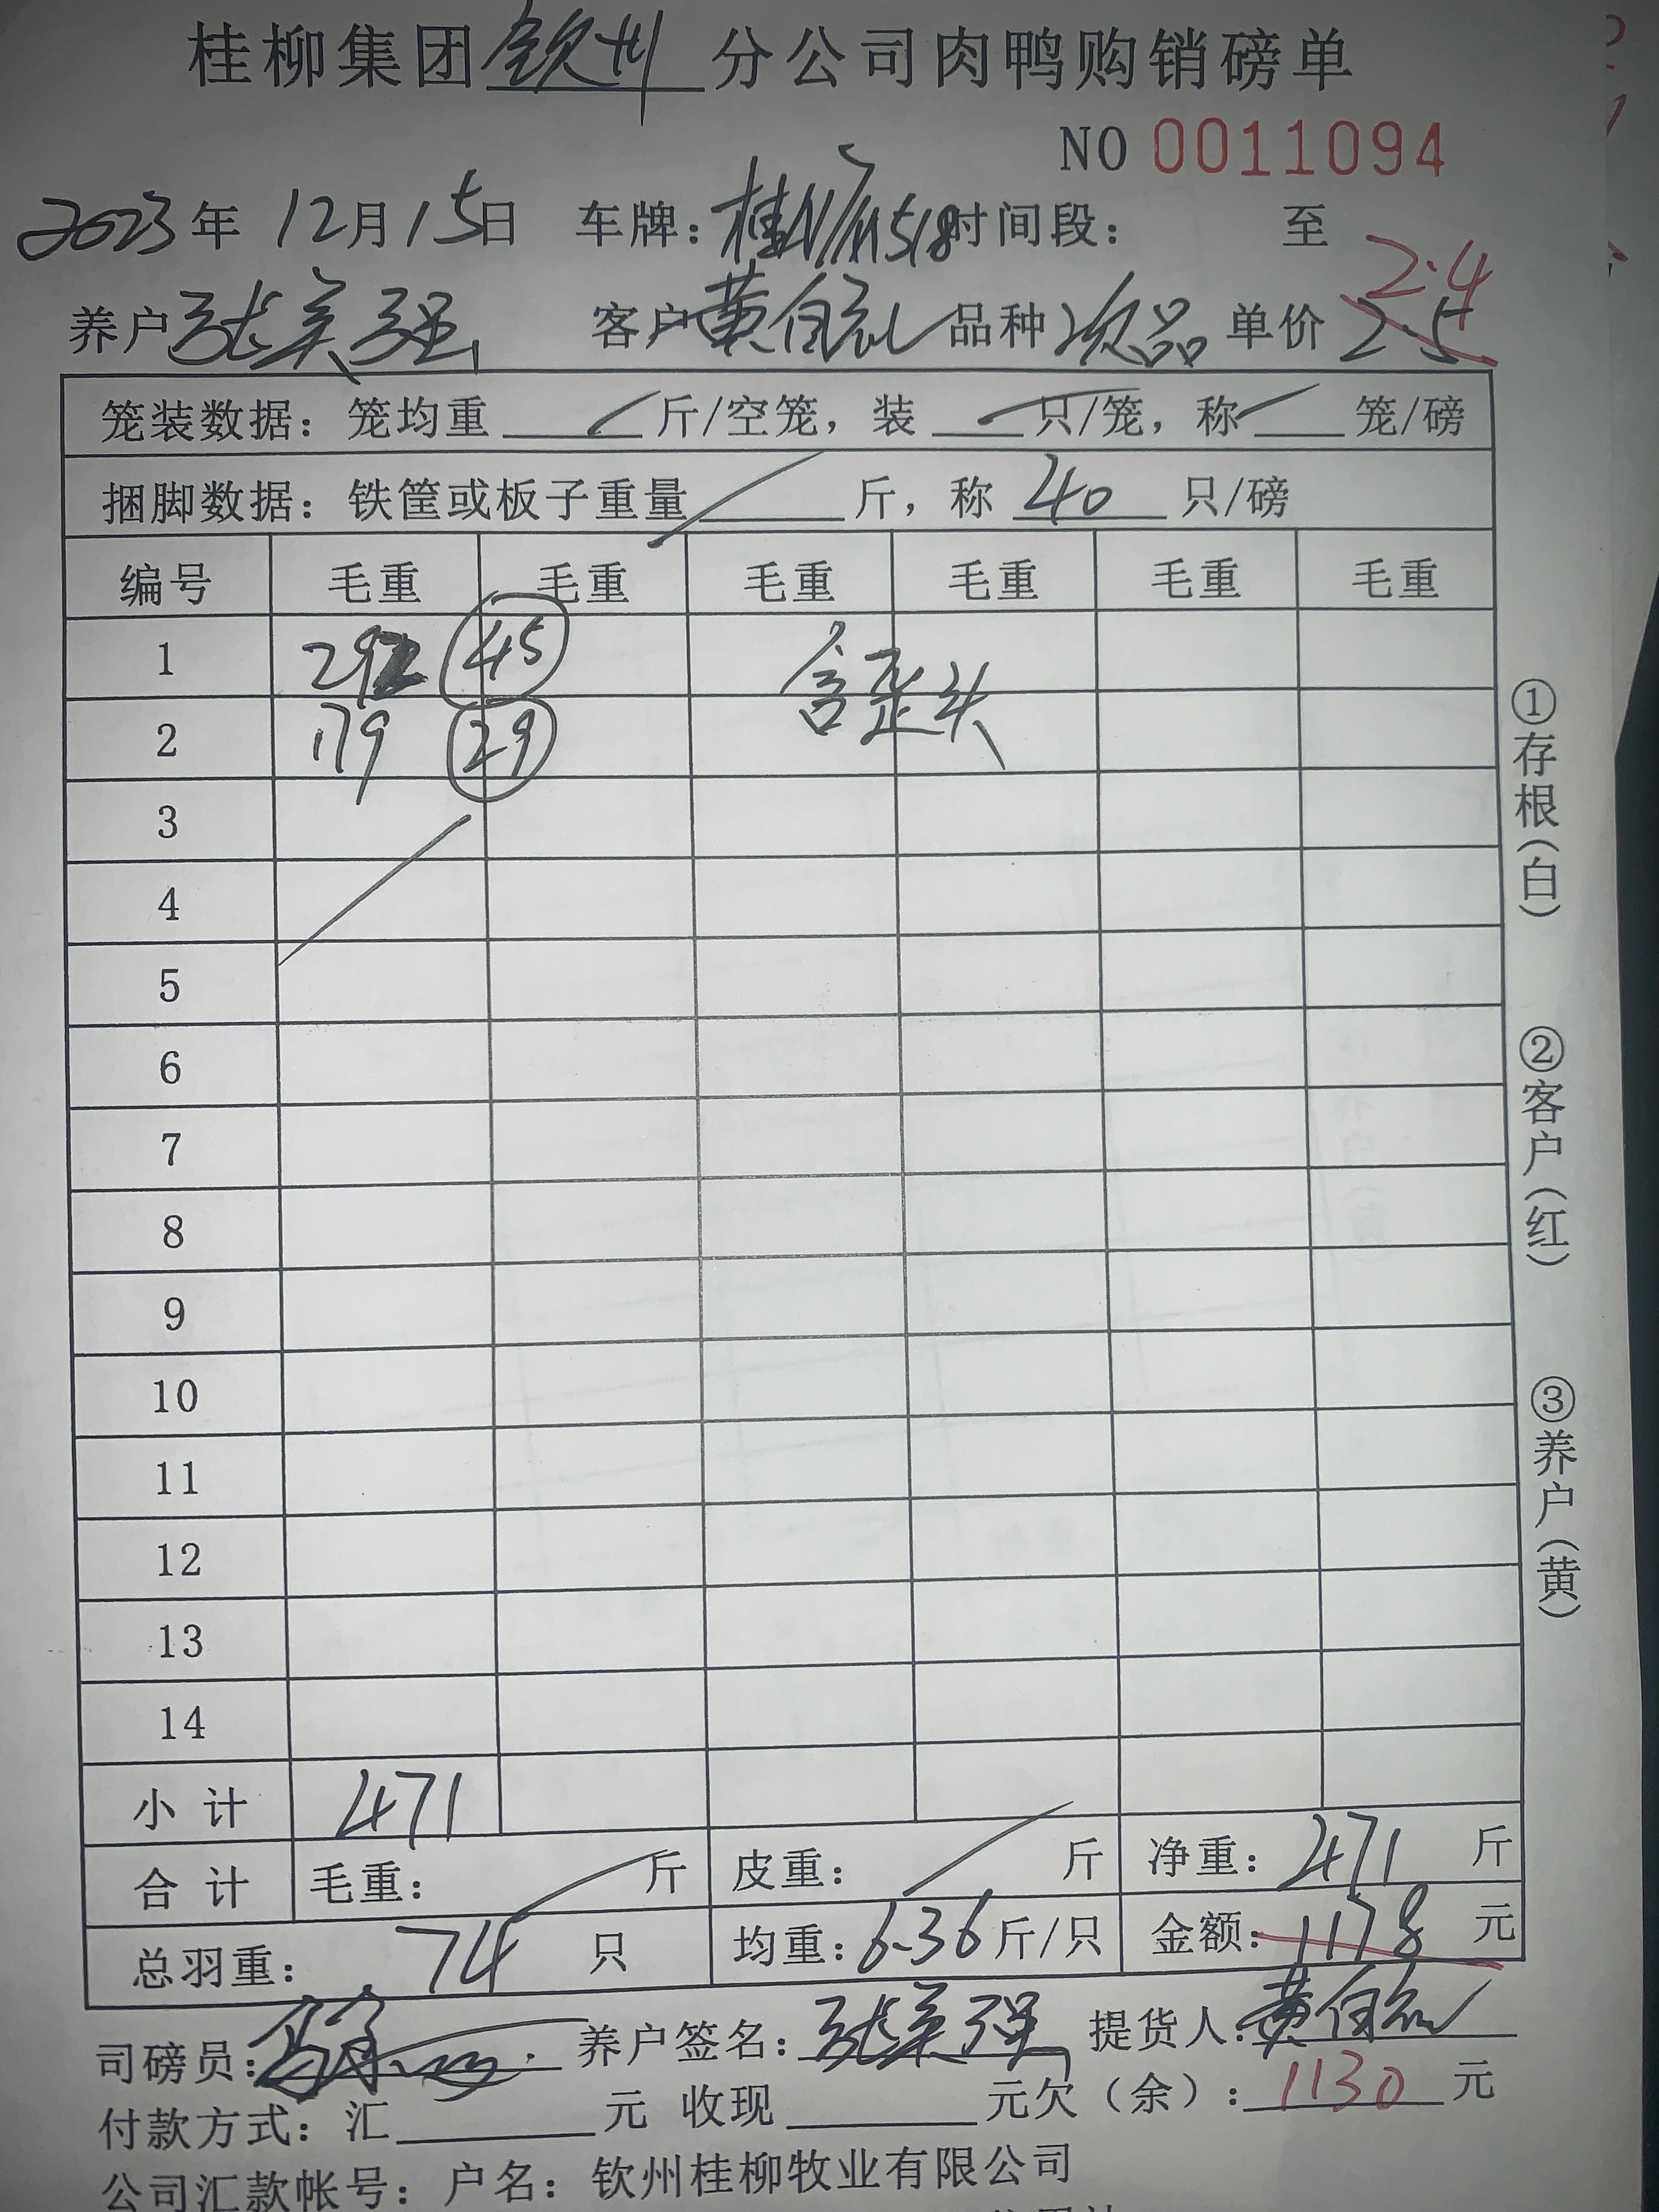 桂柳集团钦州分公司肉鸭购销磅单
NO 0011094
2023年12月15日 车牌: 时间段: 至
2.4
养户张美强 客户黄 品种次品 单价2.5
笼装数据: 笼均重 斤/空笼, 装 只/笼, 称 笼/磅
捆脚数据: 铁筐或板子重量 斤, 称 40 只/磅
编号 毛重 毛重 毛重 毛重 毛重 毛重
1 292 45 含歪头
2 179 29
3
4
5
6
7
8
9
10
11
12
13
14
小计 471
合计 毛重: 斤 皮重: 斤 净重: 471 斤
总羽重: 74 只 均重: 6.36 斤/只 金额: 1178 元
司磅员: 养户签名: 张美强 提货人: 黄
付款方式: 汇 元 收现 元欠（余）: 1130 元
公司汇款帐号: 户名: 钦州桂柳牧业有限公司
①存根（白）
②客户（红）
③养户（黄）